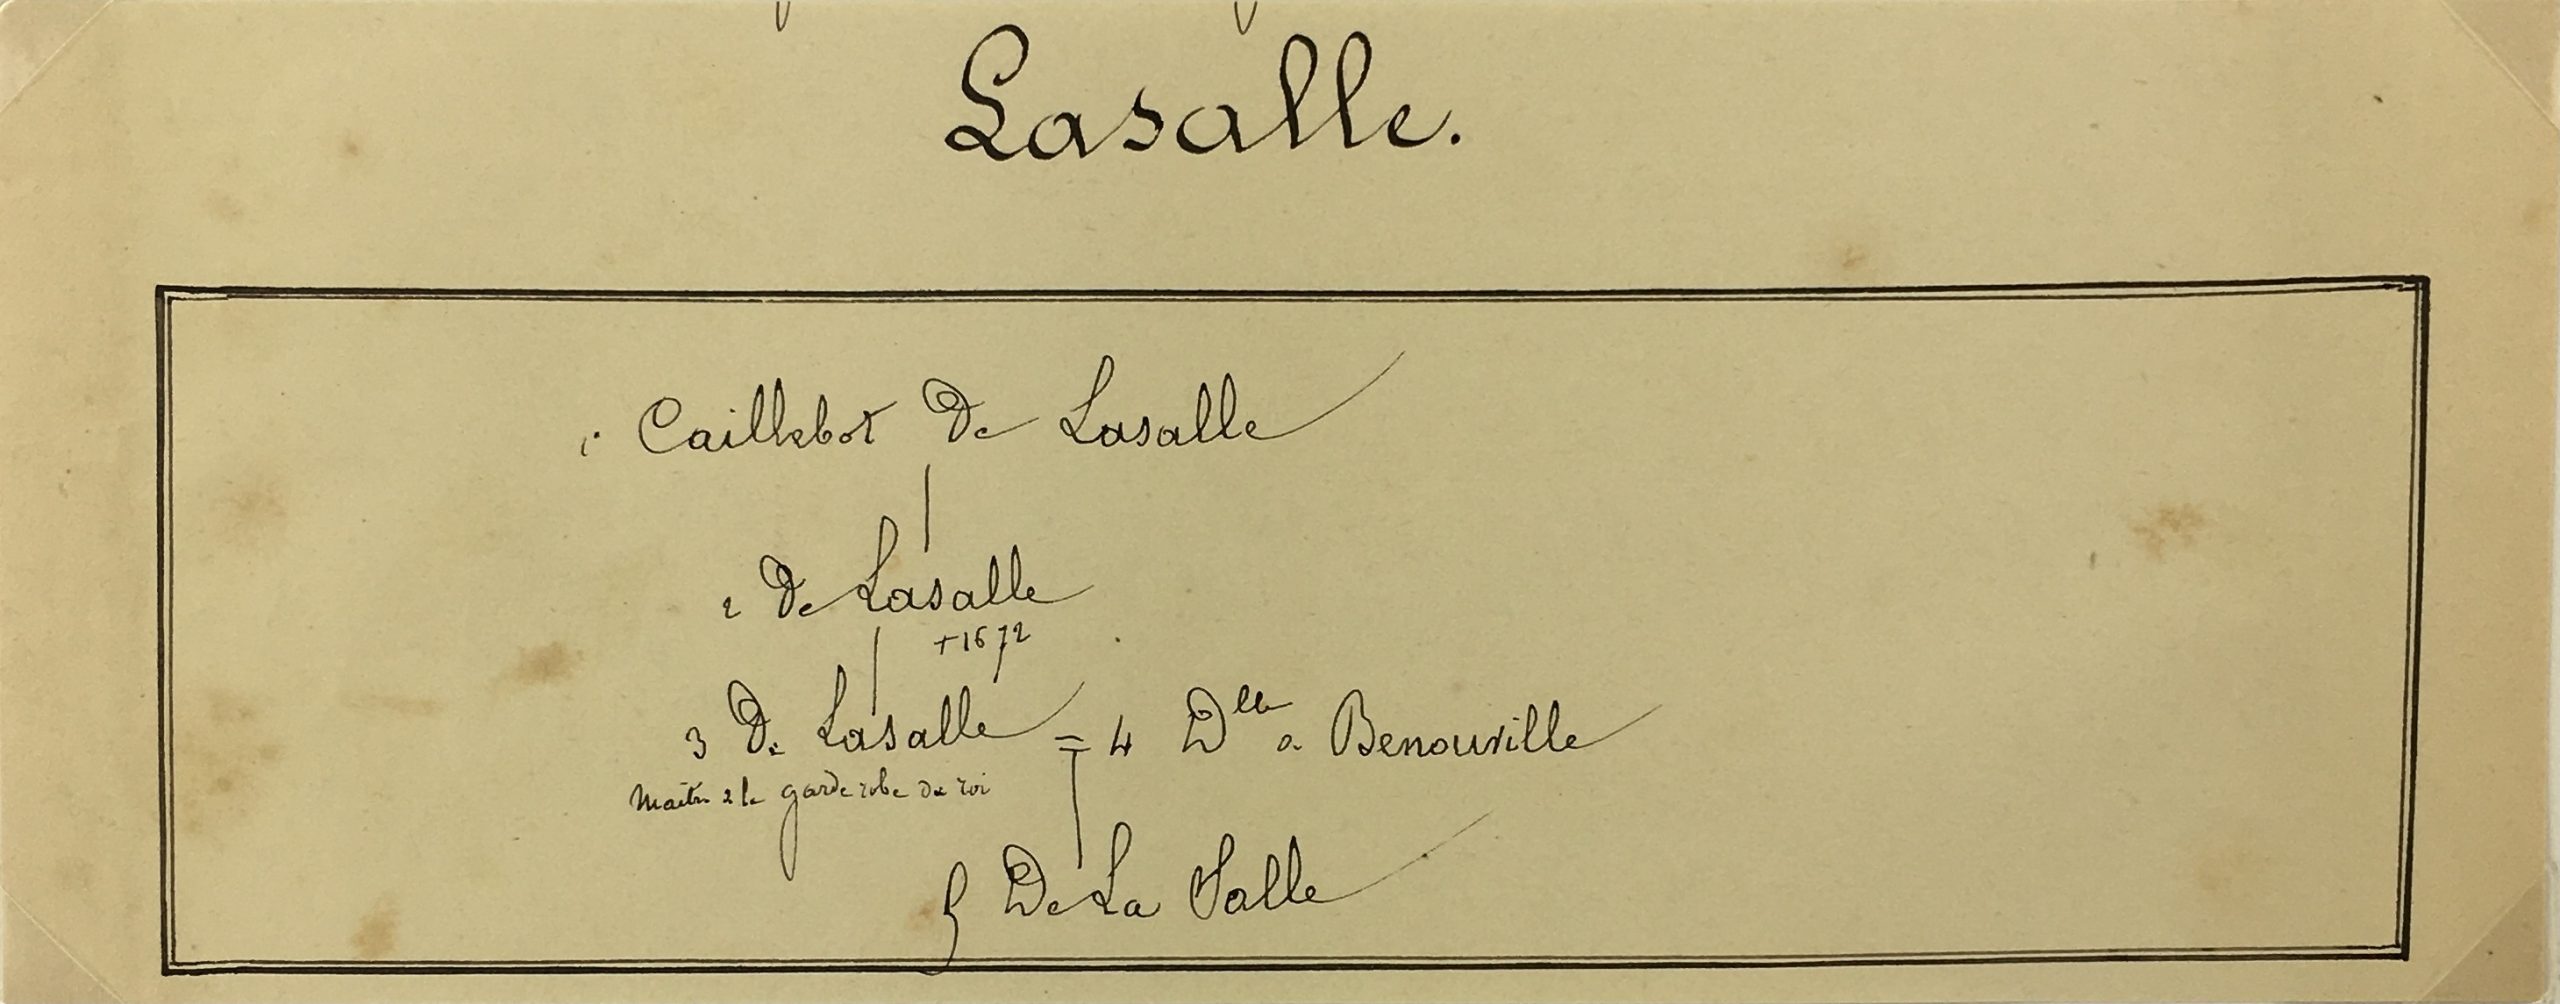 Lasalle.
1. Caillebot De Lasalle
2 De Lasalle
+1672
3 De Lasalle = 4 Dlle de Benouville
Maître de la garde robe du roi
5 De La Salle